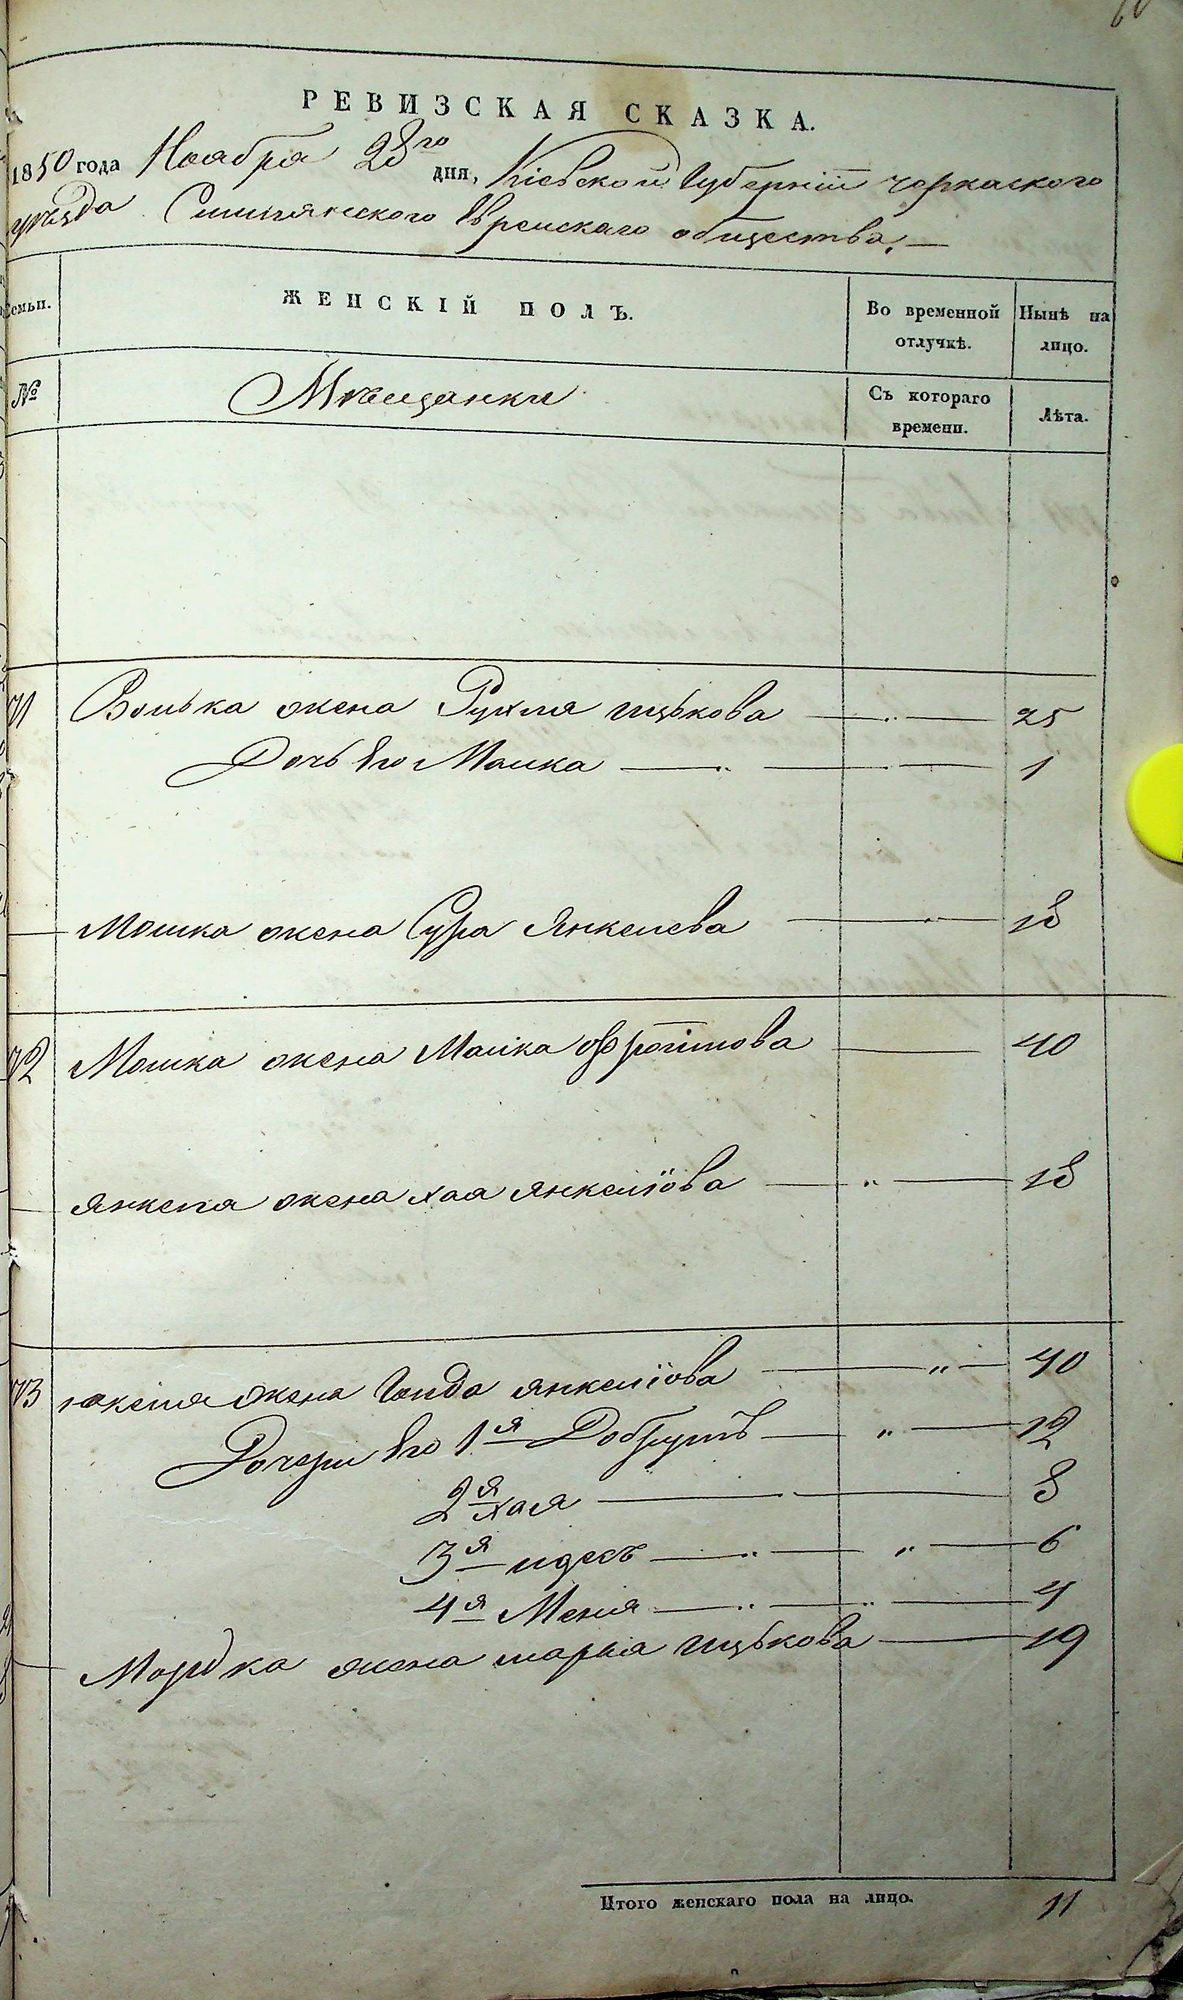 РЕВИЗСКАЯ СКАЗКА.
1850 года Ноября 28го дня, Кіевской Губерніи черкаского
уѣзда Смилянского Еврейскаго общества.
Семьи. ЖЕНСКІЙ ПОЛЪ. Во временной отлучкѣ. Нынѣ на лицо.
№ Мѣщанки Съ котораго времени. Лѣта.
71 Волька жена Рухля ицькова 25
Дочь Его Малка 1
Мошка жена Сура Янкелева 18
72 Мошка жена Малка Фроимова 40
янкеля жена хая янкеліова 18
73 жена Голда янкеліова 40
Дочери Его 1я Добрушъ 12
2я хая 8
3я идесъ 6
4я Меня 4
Мордка жена марья ицькова 19
Итого женскаго пола на лицо. 11